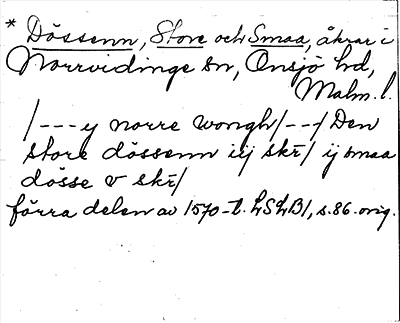 * Dössenn, Store och Smaa, åkrar i
Norrvidinge sn, Onsjö hd,
Malm. l.
/---y norre wongh/---/ Den
store dössenn iij skr̄/ ij smaa
dösse v skr̄/
förra delen av 1570-t. LSLB1, s.86. orig.